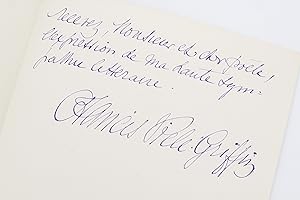 recevez, Monsieur et cher poète,
l'expression de ma haute sym-
pathie littéraire.
Francis Vielé-Griffin